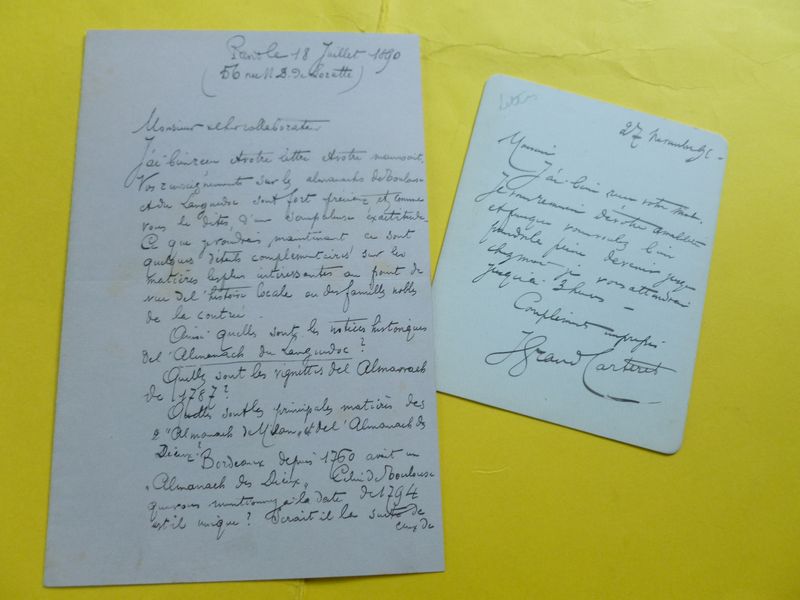 18 Juillet 1890
(56 rue N.D. de Lorette)
Monsieur et cher collaborateur
J'ai bien reçu votre lettre
Vos renseignements sur les almanachs de Toulouse
et du Languedoc sont fort précieux et, comme
vous le dites, d'une scrupuleuse exactitude.
Ce que je voudrais, maintenant ce sont
quelques détails complémentaires sur les
matières les plus intéressantes au point de
vue de l'histoire locale ou des familles nobles
de la contrée.
Ainsi quelles sont les notices historiques
de l'Almanach du Languedoc?
Quelles sont les vignettes de l'Almanach
de 1787?
Quelles sont les principales matières des
"Almanach de Milan, et de l'Almanach des
Dieux?
Bordeaux depuis 1760 avait un
"Almanach des Dieux". Celui de Toulouse
que vous mentionnez à la date de 1794
est-il unique? Serait-il la suite de
ceux de
Lettres
27 novembre
Monsieur
J'ai bien reçu votre
Je vous remercie de votre amabilité
et puisque vous voulez bien
prendre la peine de venir jusque
chez moi je vous attendrai
jusqu'à 3 heures —
Compliments
J Grand Carteret